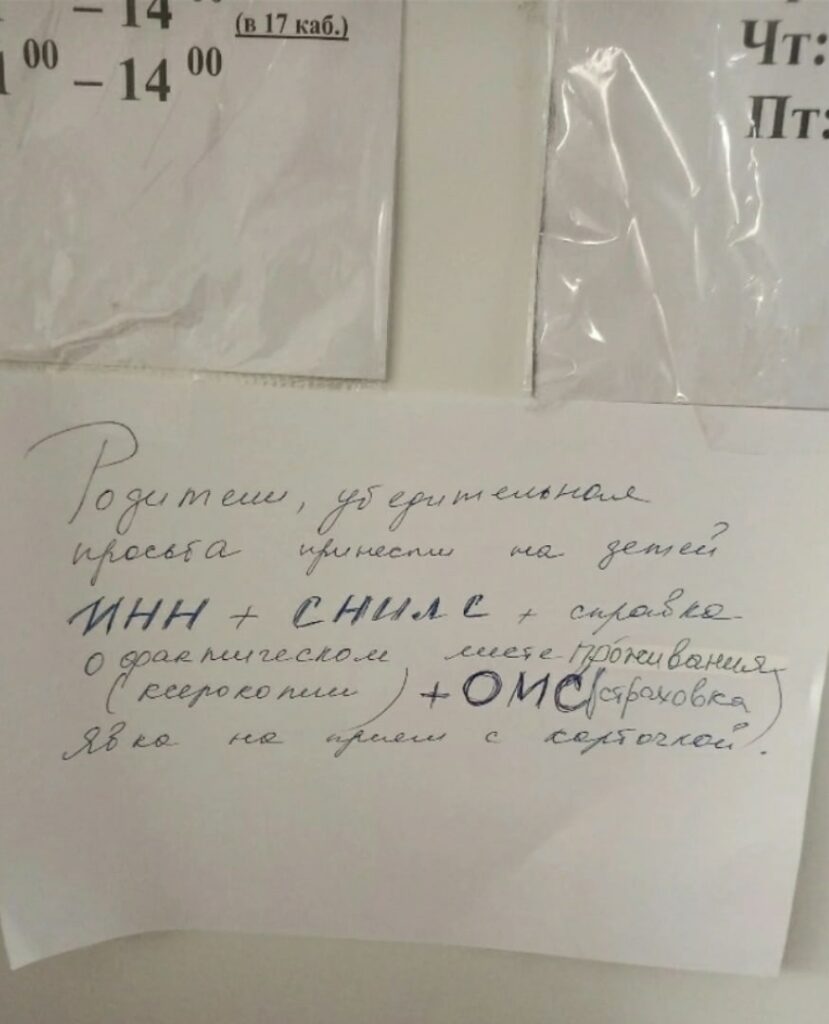 – 14 00 (в 17 каб.)
00 – 14 00
Чт:
Пт:
Родители, убедительная
просьба принести на детей
ИНН + СНИЛС + справка
о фактическом месте проживания
(ксерокопии) + ОМС (страховка)
Явка на прием с карточкой.